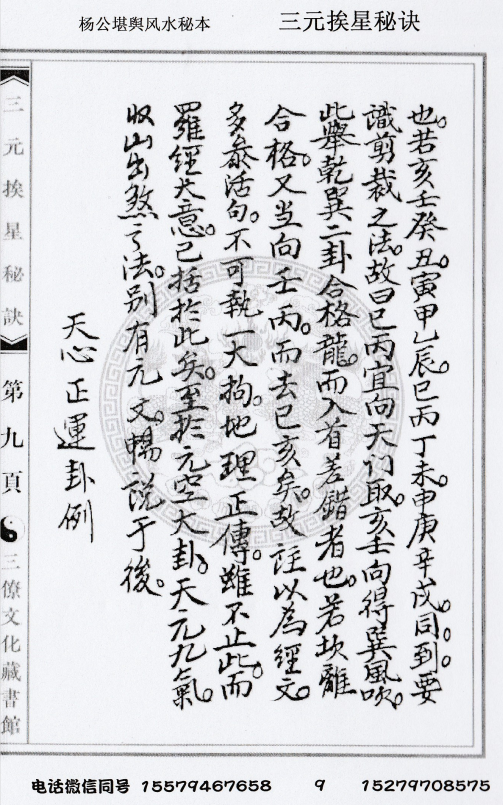 杨公堪舆风水秘本 三元挨星秘诀
也。若亥壬癸丑。寅甲乙辰。巳丙丁未。申庚辛戌。同到。要
識剪裁之法。故曰巳丙宜向天门。取亥壬向得巽風吹。
此舉乾巽二卦合格龍。而入首差錯者也。若坎離
合格。又当向壬丙。而去巳亥矣。故註以為經文。
多叅活句。不可執一夫拘。地理正傳。雖不止此。而
羅經大意。已括於此矣。至於元空大卦。天元九氣
收山出煞之法。别有元文。暢說于後。
天心正運卦例
三元挨星秘訣
第九頁
三僚文化藏書館
电话微信同号 15579467658 9 15279708575